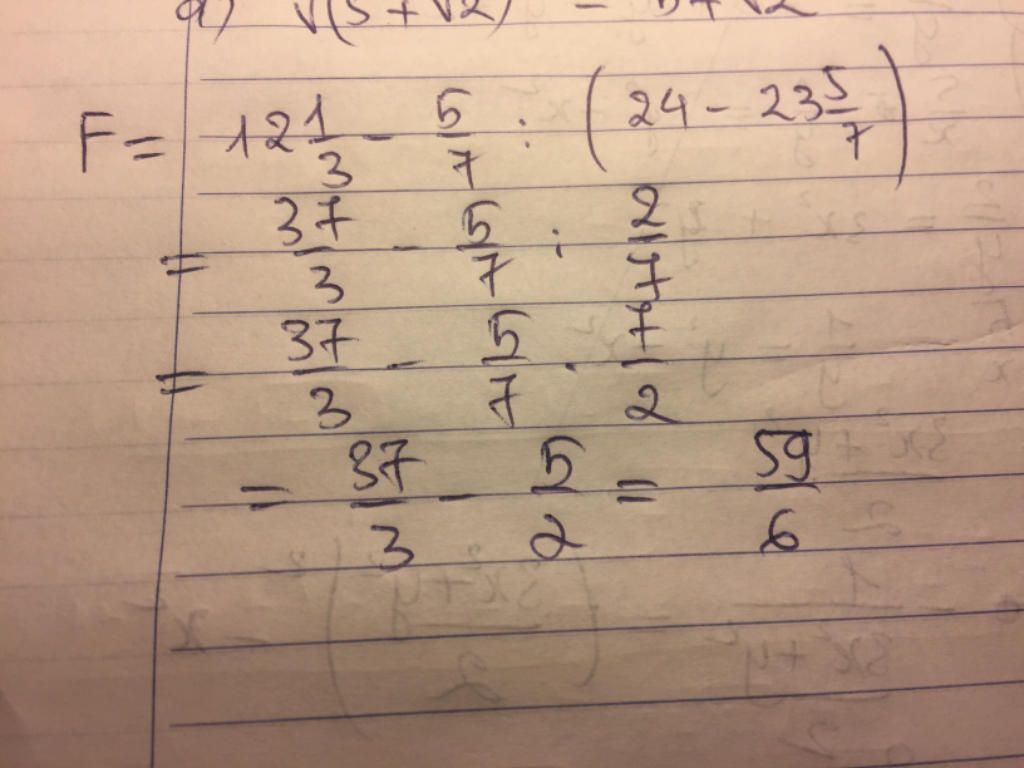 a) √(5+√2) = 5+√2
F = 12 1/3 - 5/7 : (24 - 23 5/7)
= 37/3 - 5/7 : 2/7
= 37/3 - 5/7 · 7/2
= 37/3 - 5/2 = 59/6